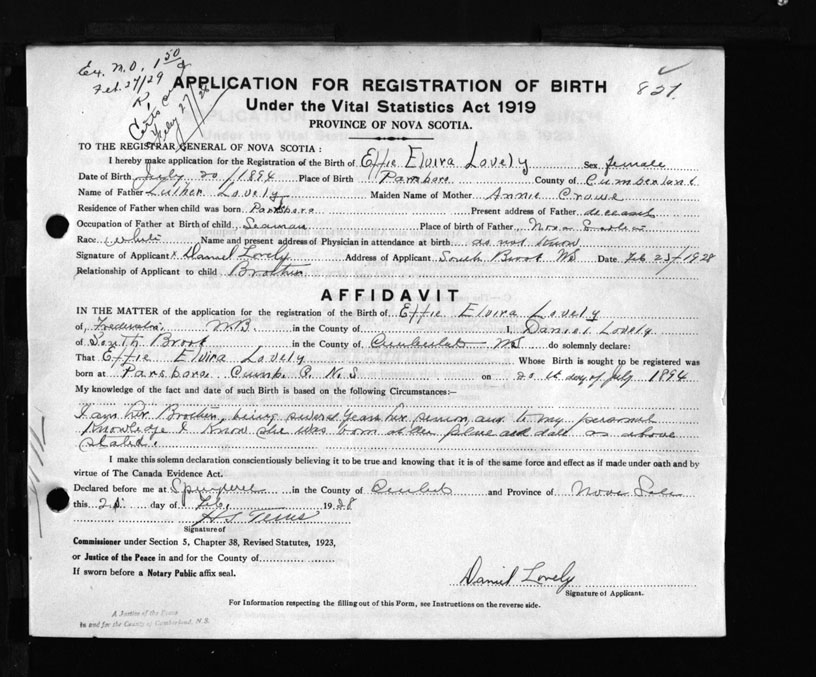 Ex. M.O. 1 50
Feb. 27/29
827.
APPLICATION FOR REGISTRATION OF BIRTH
Under the Vital Statistics Act 1919
PROVINCE OF NOVA SCOTIA.
TO THE REGISTRAR GENERAL OF NOVA SCOTIA:
I hereby make application for the Registration of the Birth of Effie Elvira Lovely Sex female
Date of Birth July 20/1894 Place of Birth Parsboro County of Cumberland
Name of Father Luther Lovely Maiden Name of Mother Annie Crowe
Residence of Father when child was born Parsboro Present address of Father deceased
Occupation of Father at Birth of child Seaman Place of birth of Father Nova Scotia
Race white Name and present address of Physician in attendance at birth do not know
Signature of Applicant x Daniel Lovely Address of Applicant South Brook NS Date Feb 23/1928
Relationship of Applicant to child Brother
AFFIDAVIT
IN THE MATTER of the application for the registration of the Birth of Effie Elvira Lovely
of N.B. in the County of I, Daniel Lovely
of South Brook in the County of NS do solemnly declare:
That Effie Elvira Lovely Whose Birth is sought to be registered was
born at Parsboro Cump. N.S on 20 th day of July 1894
My knowledge of the fact and date of such Birth is based on the following Circumstances:—
I am her Brother, being several years her senior, and to my personal
knowledge I know she was born at the place and date as above
stated.
I make this solemn declaration conscientiously believing it to be true and knowing that it is of the same force and effect as if made under oath and by
virtue of The Canada Evidence Act.
Declared before me at in the County of and Province of Nova
this day of Feb. 1928
Signature of
Commissioner under Section 5, Chapter 38, Revised Statutes, 1923,
or Justice of the Peace in and for the County of
If sworn before a Notary Public affix seal.
Daniel Lovely
Signature of Applicant.
For Information respecting the filling out of this Form, see Instructions on the reverse side.
A Justice of the Peace
in and for the County of Cumberland, N.S.